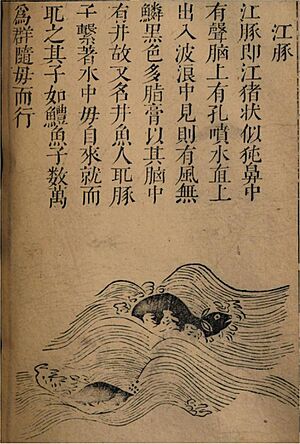 江豚
江豚即江猪狀似㹠鼻中
有聲腦上有孔噴水直上
出入波浪中見則有風無
鱗黑色多脂膏以其腦中
有井故又名井魚人耴豚
子繫著水中毋自來就而
耴之其子如鱧魚子数萬
爲群隨毋而行